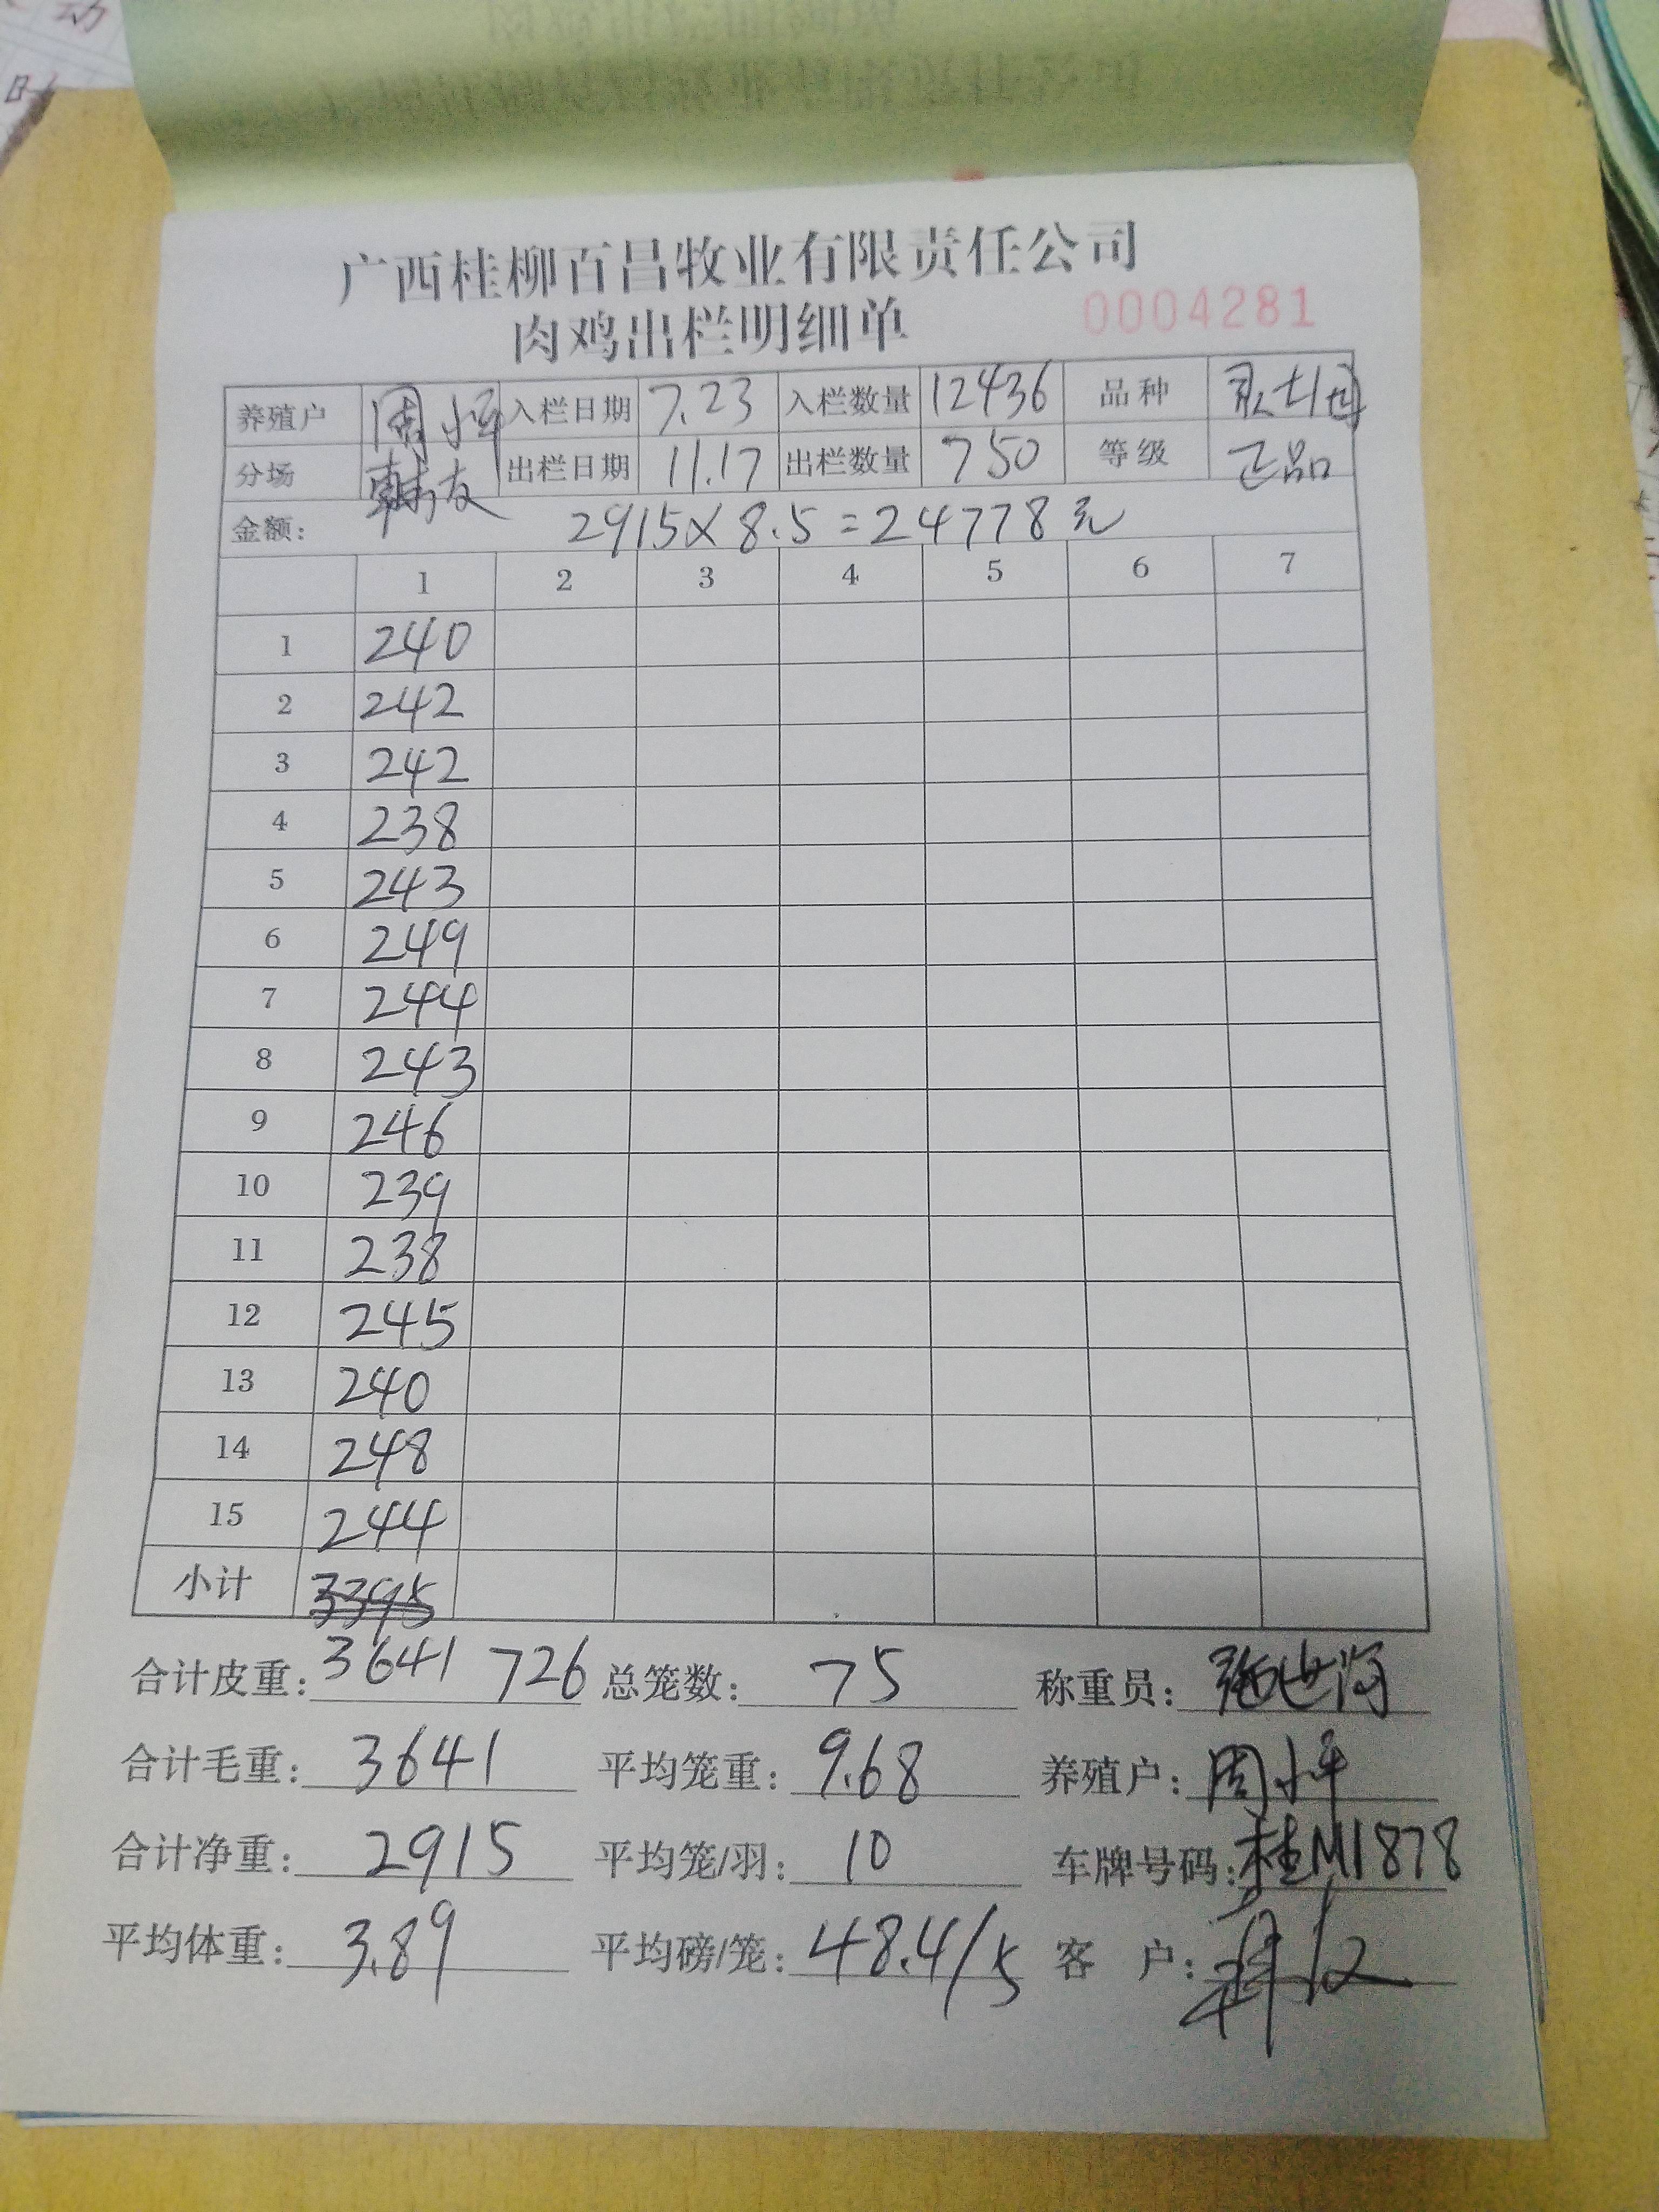 广西桂柳百昌牧业有限责任公司
肉鸡出栏明细单 0004281
养殖户 周小平 入栏日期 7.23 入栏数量 12436 品种
分场 韩友 出栏日期 11.17 出栏数量 750 等级 正品
金额: 2915×8.5=24778元
1 2 3 4 5 6 7
1 240
2 242
3 242
4 238
5 243
6 249
7 244
8 243
9 246
10 239
11 238
12 245
13 240
14 248
15 244
小计 3395
合计皮重: 3641 726 总笼数: 75 称重员:
合计毛重: 3641 平均笼重: 9.68 养殖户: 周小平
合计净重: 2915 平均笼/羽: 10 车牌号码: 桂M1878
平均体重: 3.89 平均磅/笼: 48.4/5 客 户: